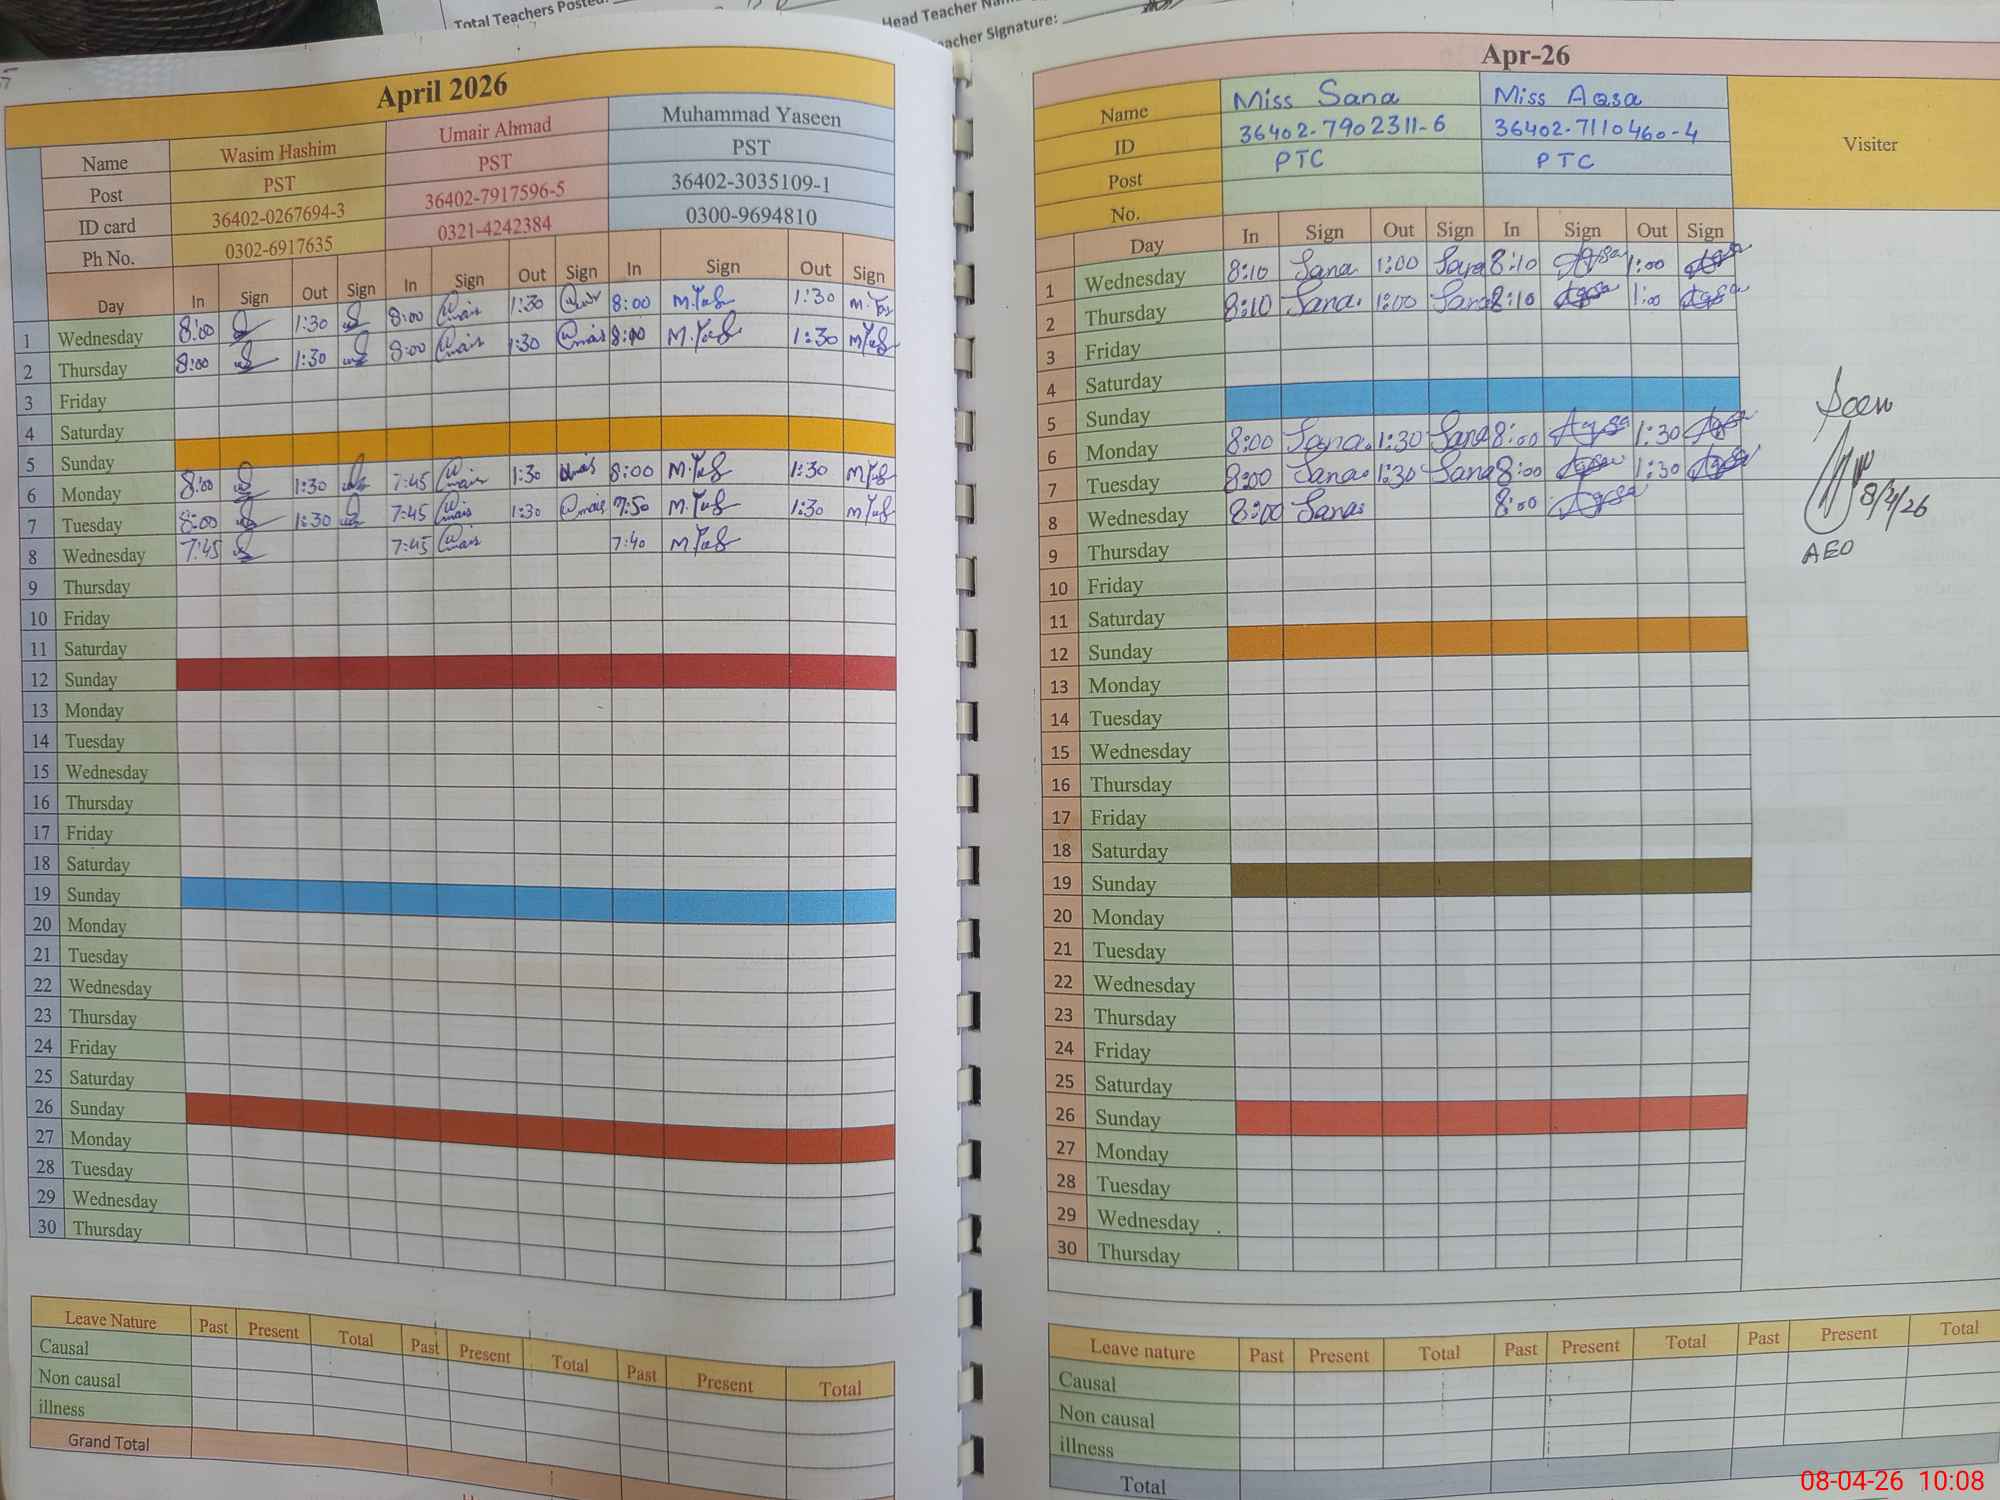 Total Teachers Posted:
Head Teacher
Teacher Signature:
April 2026
Name Wasim Hashim Umair Ahmad Muhammad Yaseen
Post PST PST PST
ID card 36402-0267694-3 36402-7917596-5 36402-3035109-1
Ph No. 0302-6917635 0321-4242384 0300-9694810
Day In Sign Out Sign In Sign Out Sign In Sign Out Sign
1 Wednesday 8:00 1:30 8:00 1:30 8:00 M.Yas 1:30 M.Yas
2 Thursday 8:00 1:30 8:00 Umair 1:30 Umair 8:00 M.Yas 1:30 M.Yas
3 Friday
4 Saturday
5 Sunday
6 Monday 8:00 1:30 7:45 Umair 1:30 Umair 8:00 M.Yas 1:30 M.Yas
7 Tuesday 8:00 1:30 7:45 Umair 1:30 Umair 7:50 M.Yas 1:30 M.Yas
8 Wednesday 7:45 7:45 Umair 7:40 M.Yas
9 Thursday
10 Friday
11 Saturday
12 Sunday
13 Monday
14 Tuesday
15 Wednesday
16 Thursday
17 Friday
18 Saturday
19 Sunday
20 Monday
21 Tuesday
22 Wednesday
23 Thursday
24 Friday
25 Saturday
26 Sunday
27 Monday
28 Tuesday
29 Wednesday
30 Thursday
Leave Nature Past Present Total Past Present Total Past Present Total
Causal
Non causal
illness
Grand Total
Apr-26
Name Miss Sana Miss Aqsa Visiter
ID 36402-7902311-6 36402-7110460-4
Post PTC PTC
No.
Day In Sign Out Sign In Sign Out Sign
1 Wednesday 8:10 Sana 1:00 Sana 8:10 Aqsa 1:00 Aqsa
2 Thursday 8:10 Sana 1:00 Sana 8:10 Aqsa 1:00 Aqsa
3 Friday
4 Saturday
5 Sunday
6 Monday 8:00 Sana 1:30 Sana 8:00 Aqsa 1:30 Aqsa
7 Tuesday 8:00 Sana 1:30 Sana 8:00 Aqsa 1:30 Aqsa
8 Wednesday 8:00 Sana 8:00 Aqsa
9 Thursday
10 Friday
11 Saturday
12 Sunday
13 Monday
14 Tuesday
15 Wednesday
16 Thursday
17 Friday
18 Saturday
19 Sunday
20 Monday
21 Tuesday
22 Wednesday
23 Thursday
24 Friday
25 Saturday
26 Sunday
27 Monday
28 Tuesday
29 Wednesday
30 Thursday
Seen
8/4/26
AEO
Leave nature Past Present Total Past Present Total Past Present Total
Causal
Non causal
illness
Total
08-04-26 10:08